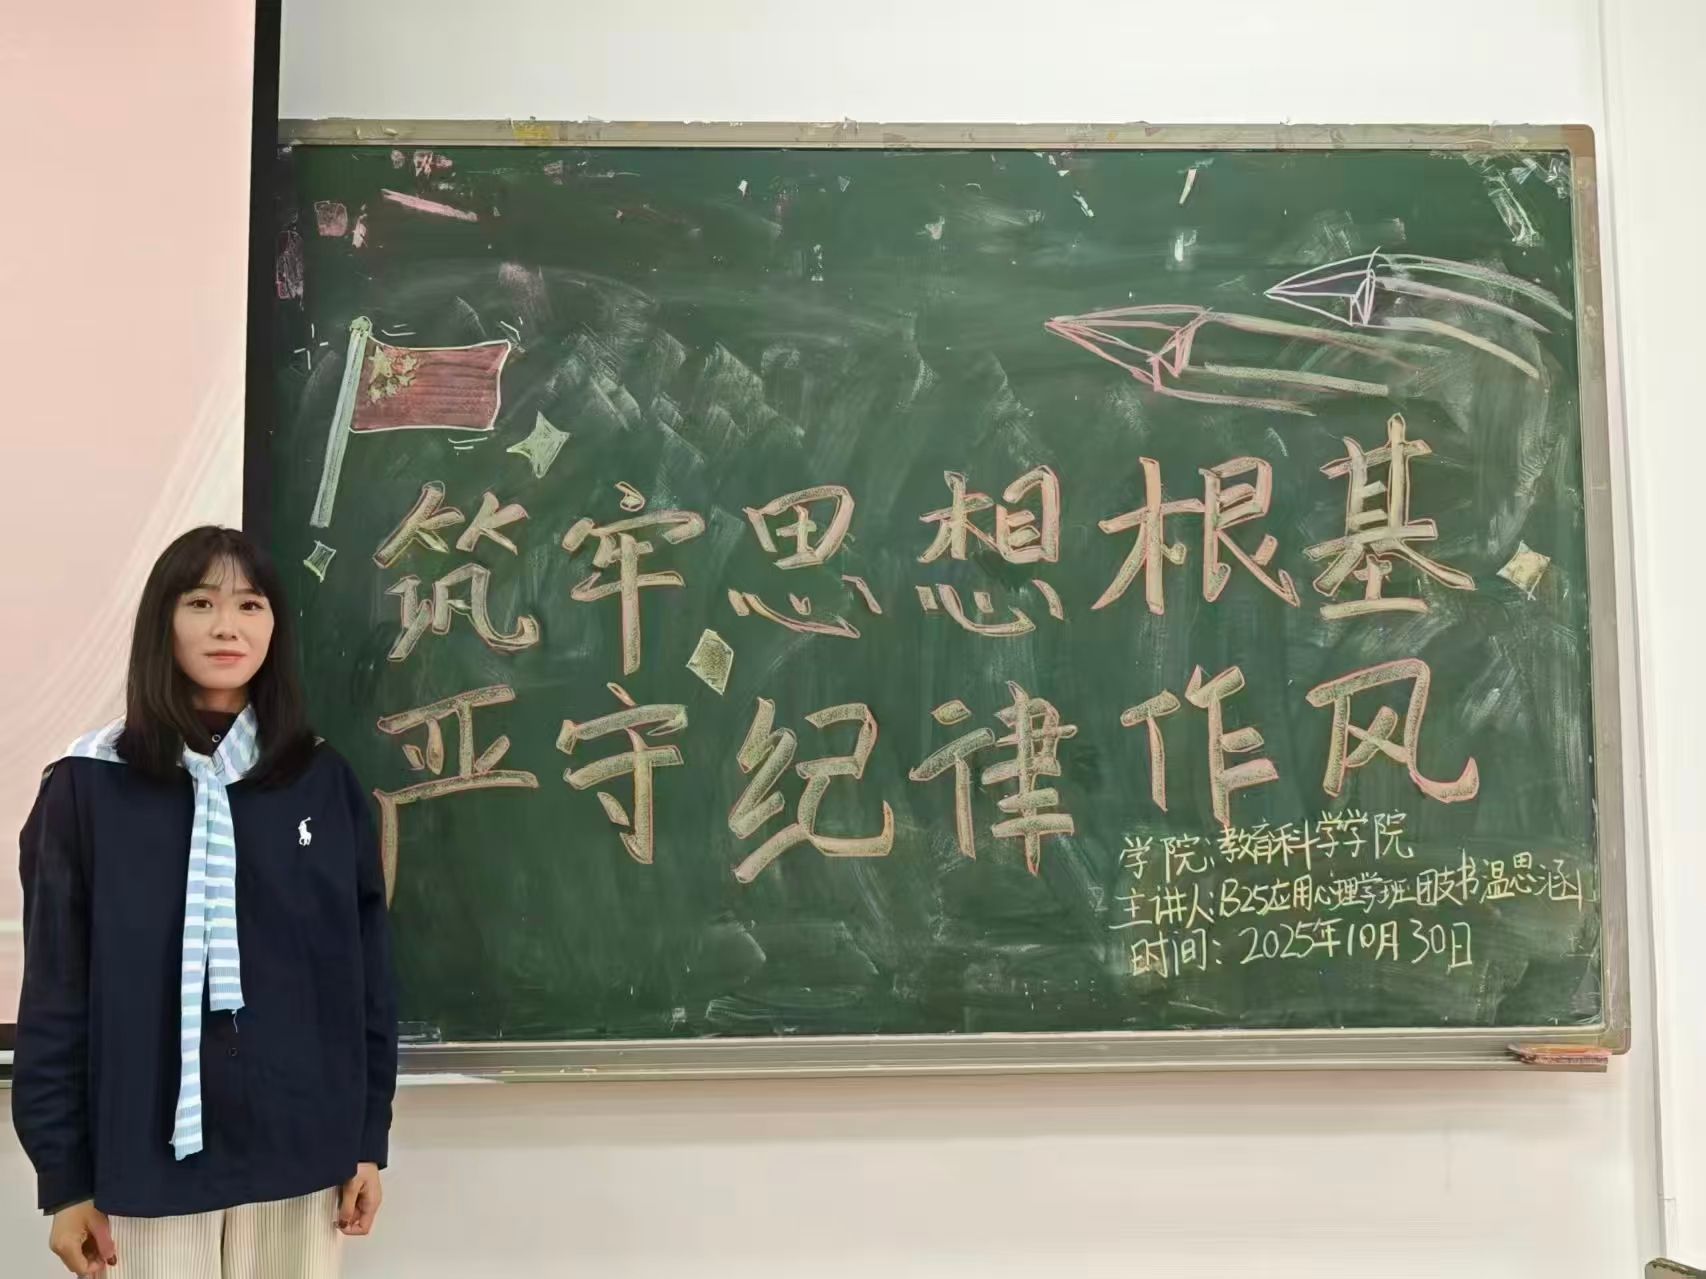 筑牢思想根基
严守纪律作风
学院:教育科学学院
主讲人:B25应用心理学班团支书温思涵
时间:2025年10月30日